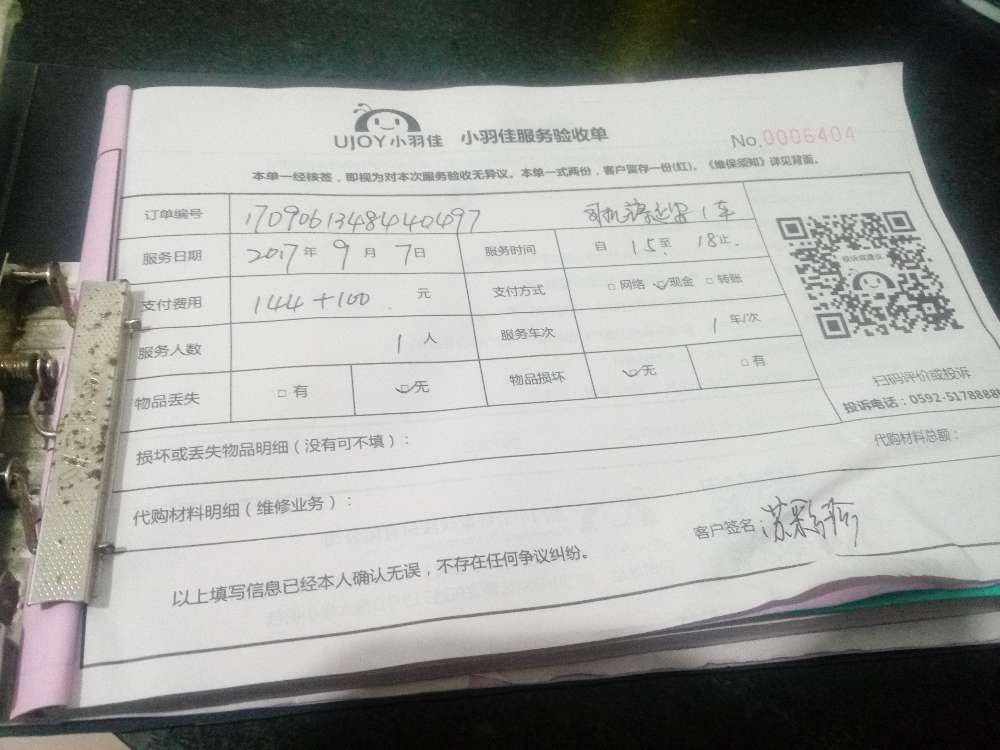 UJOY小羽佳 小羽佳服务验收单 No.0006404
本单一经核签，即视为对本次服务验收无异议。本单一式两份，客户留存一份(红)。《维保须知》详见背面。
订单编号 17090613484040497 司机 1车
服务日期 2017年9月7日 服务时间 自15至18止.
支付费用 144+100 元 支付方式 □网络 ☑现金 □转账
服务人数 1人 服务车次 1车/次
物品丢失 □有 ☑无 物品损坏 ☑无 □有
投诉或建议
扫码评价或投诉
投诉电话：0592-5178888
损坏或丢失物品明细（没有可不填）：
代购材料总额：
代购材料明细（维修业务）：
客户签名 苏
以上填写信息已经本人确认无误，不存在任何争议纠纷。